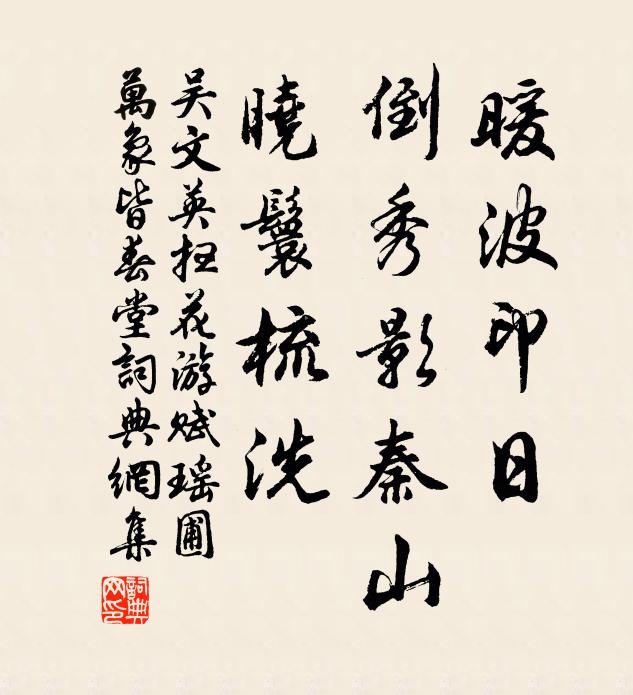 暖波印日
倒秀影秦山
曉鬟梳洗
吳文英扫花游賦瑶圃
萬象皆春堂詞典網集
詞典网印